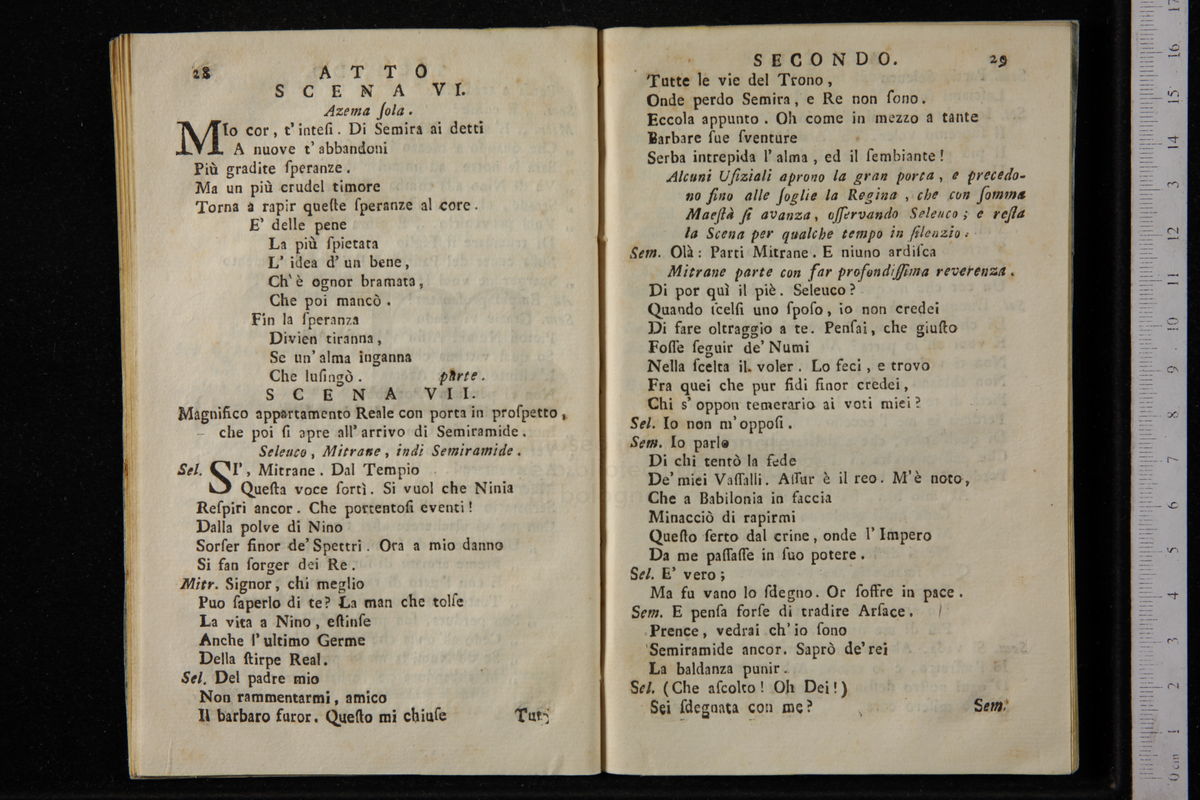 28
ATTO
SCENA VI.
Azema ſola.
MIo cor, t' inteſi. Di Semira ai detti
A nuove t' abbandoni
Più gradite ſperanze.
Ma un più crudel timore
Torna a rapir queſte ſperanze al core.
E' delle pene
La più ſpietata
L' idea d' un bene,
Ch' è ognor bramata,
Che poi mancò.
Fin la ſperanza
Divien tiranna,
Se un' alma inganna
Che luſingò. parte.
SCENA VII.
Magnifico appartamento Reale con porta in proſpetto,
che poi ſi apre all' arrivo di Semiramide.
Seleuco, Mitrane, indi Semiramide.
Sel. SI', Mitrane. Dal Tempio
Queſta voce ſortì. Si vuol che Ninia
Reſpiri ancor. Che portentoſi eventi!
Dalla polve di Nino
Sorſer finor de' Spettri. Ora a mio danno
Si fan ſorger dei Re.
Mitr. Signor, chi meglio
Puo ſaperlo di te? La man che tolſe
La vita a Nino, eſtinſe
Anche l' ultimo Germe
Della ſtirpe Real.
Sel. Del padre mio
Non rammentarmi, amico
Il barbaro furor. Queſto mi chiuſe
Tut-
SECONDO.
29
Tutte le vie del Trono,
Onde perdo Semira, e Re non ſono.
Eccola appunto. Oh come in mezzo a tante
Barbare ſue ſventure
Serba intrepida l' alma, ed il ſembiante!
Alcuni Ufiziali aprono la gran porta, e precedo-
no fino alle ſoglie la Regina, che con ſomma
Maeſtà ſi avanza, oſſervando Seleuco; e reſta
la Scena per qualche tempo in ſilenzio.
Sem. Olà: Parti Mitrane. E niuno ardiſca
Mitrane parte con far profondiſſima reverenza.
Di por quì il piè. Seleuco?
Quando ſcelſi uno ſpoſo, io non credei
Di fare oltraggio a te. Penſai, che giuſto
Foſſe ſeguir de' Numi
Nella ſcelta il voler. Lo feci, e trovo
Fra quei che pur fidi finor credei,
Chi s' oppon temerario ai voti miei?
Sel. Io non m' oppoſi.
Sem. Io parlo
Di chi tentò la fede
De' miei Vaſſalli. Aſſur è il reo. M' è noto,
Che a Babilonia in faccia
Minacciò di rapirmi
Queſto ſerto dal crine, onde l' Impero
Da me paſſaſſe in ſuo potere.
Sel. E' vero;
Ma fu vano lo ſdegno. Or ſoffre in pace.
Sem. E penſa forſe di tradire Arſace.
Prence, vedrai ch' io ſono
Semiramide ancor. Saprò de' rei
La baldanza punir.
Sel. (Che aſcolto! Oh Dei!)
Sei ſdegnata con me?
Sem.
17
16
15
14
13
12
11
10
9
8
7
6
5
4
3
2
1
0 cm